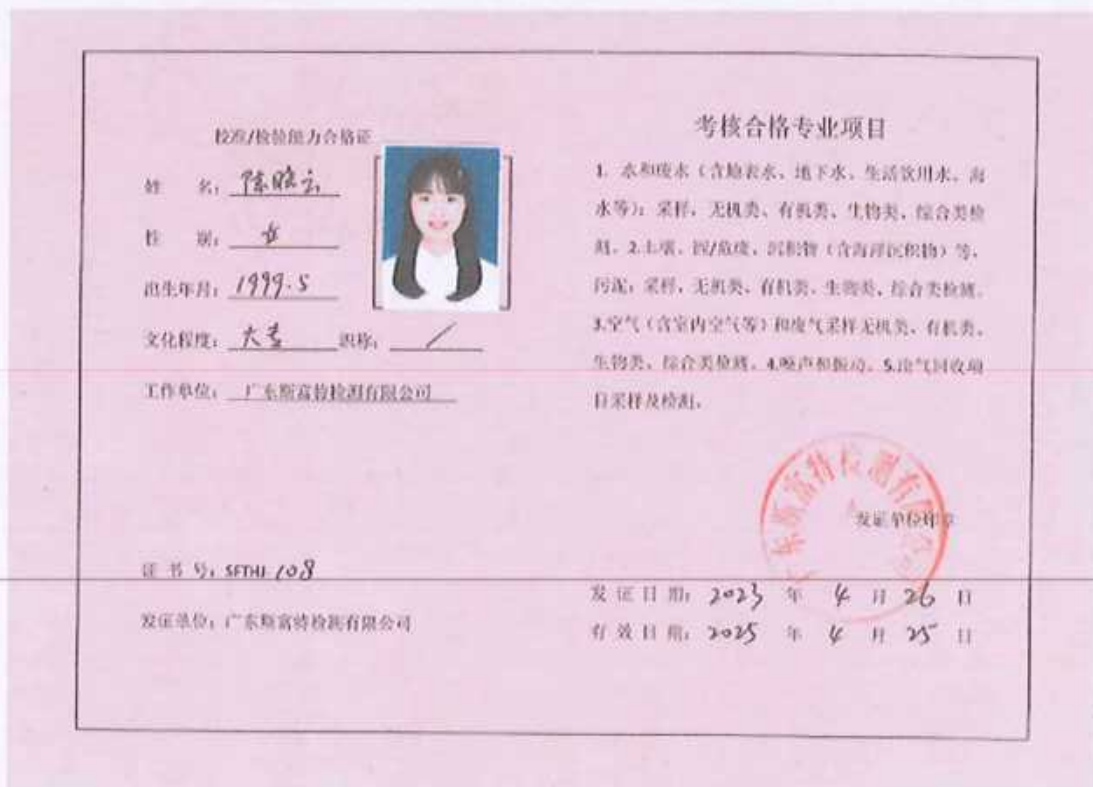 校准/检验能力合格证
姓 名：陈晓云
性 别：女
出生年月：1999.5
文化程度：大专 职称：/
工作单位：广东斯富特检测有限公司
证 书 号：SFTHJ 108
发证单位：广东斯富特检测有限公司
考核合格专业项目
1. 水和废水（含地表水、地下水、生活饮用水、海
水等）：采样，无机类、有机类、生物类、综合类检
测。2.土壤、固/危废、沉积物（含海洋沉积物）等、
污泥：采样，无机类、有机类、生物类、综合类检测。
3.空气（含室内空气等）和废气采样无机类、有机类、
生物类、综合类检测。4.噪声和振动。5.油气回收项
目采样及检测。
广东斯富特检测有限公司
发证单位印章
发 证 日 期：2023 年 4 月 26 日
有 效 日 期：2025 年 4 月 25 日